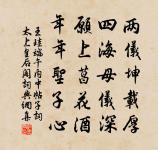 兩儀坤載厚
四海母儀深
願上菖花酒
年年聖子心
王珪端午內中帖子詞
太上皇后閣詞典網集